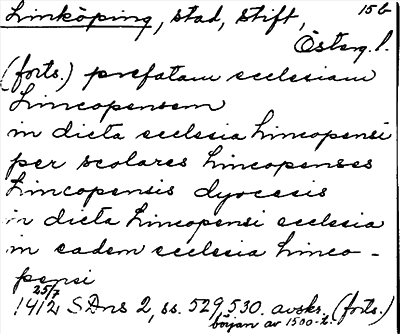 Linköping, stad, stift, 15b
Österg. l.
(forts.) prefatam ecclesiam
Lincopensem
in dicta ecclesia Lincopensi
per scolares Lincopenses
Lincopensis dyocesis
in dicta Lincopensi ecclesia
in eadem ecclesia Linco-
pensi
25/7
1412 SDns 2, ss. 529, 530. avskr. (forts.)
början av 1500-t.